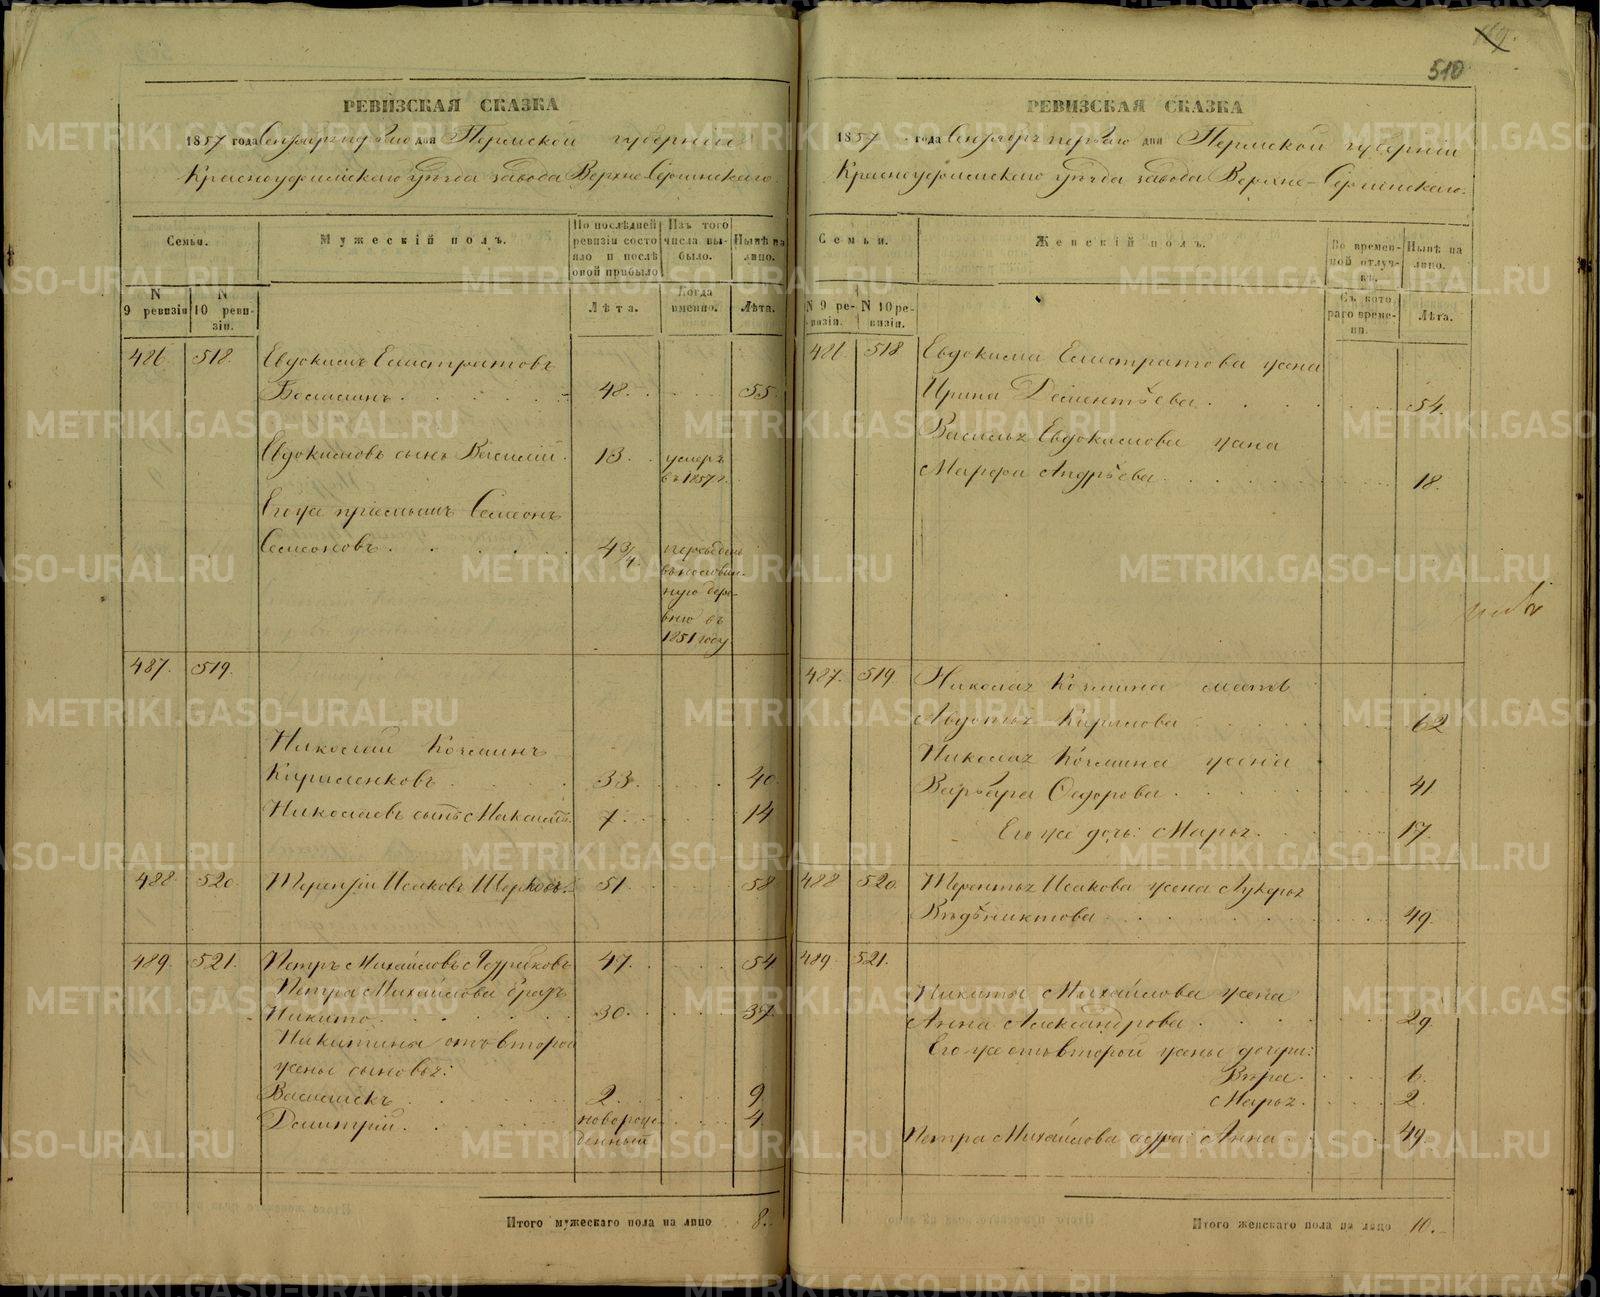 510
РЕВИЗСКАЯ СКАЗКА
1857 года дня Пермской губернии
Красноуфимскаго уѣзда завода Верхне-Сергинскаго.
Семьи.
Мужескій полъ.
По послѣдней ревизіи состояло и послѣ оной прибыло.
Изъ того числа выбыло.
Нынѣ на лицо.
N 9 ревизіи
N 10 ревизіи.
Лѣта.
Когда именно.
Лѣта.
486. 518. Евдокимъ Елистратовъ
48. 55.
Евдокимовъ сынъ Василій. 13. умеръ въ 1857 г.
Его же пріемышъ Семеонъ
Семеоновъ. 4 3/4.
1851 году.
487. 519.
Николай Козминъ
Кириленковъ. 33. 40.
Николаевъ сынъ 7. 14
488 520. Терентій Исаковъ 51. 58
489. 521. Петръ Михайловъ 47. 54
Петра Михайлова братъ
Никито. 30. 37
Никитины отъ второй
жены сыновья:
Василискъ 2. 9
Дмитрій. новорожденный 4.
Итого мужескаго пола на лицо 8.
РЕВИЗСКАЯ СКАЗКА
1857 года перваго дня Пермской губерніи
Красноуфимскаго уѣзда завода Верхне-Сергинскаго.
Семьи.
Женскій полъ.
Во временной отлучкѣ.
Нынѣ на лицо.
N 9 ревизіи.
N 10 ревизіи.
Съ котораго времени.
Лѣта.
486 518 Евдокима Елистратова жена
Ирина Дементьева. 54.
Василья Евдокимова жена
Марфа Андрѣева. 18.
487. 519 Николая Козмина мать
Авдотья Карпова 62
Николая Козмина жена
Варвара Федорова. 41
Его же дочь: Марья. 17.
488 520. Терентья Исакова жена Лукерья
49.
489. 521.
Никиты Михайлова жена
Анна Александрова. 29.
Его же отъ второй жены дочери:
Вѣра. 6.
Марья. 2.
Петра Михайлова сестра: Анна. 49.
Итого женскаго пола на лицо 10.
METRIKI.GASO-URAL.RU